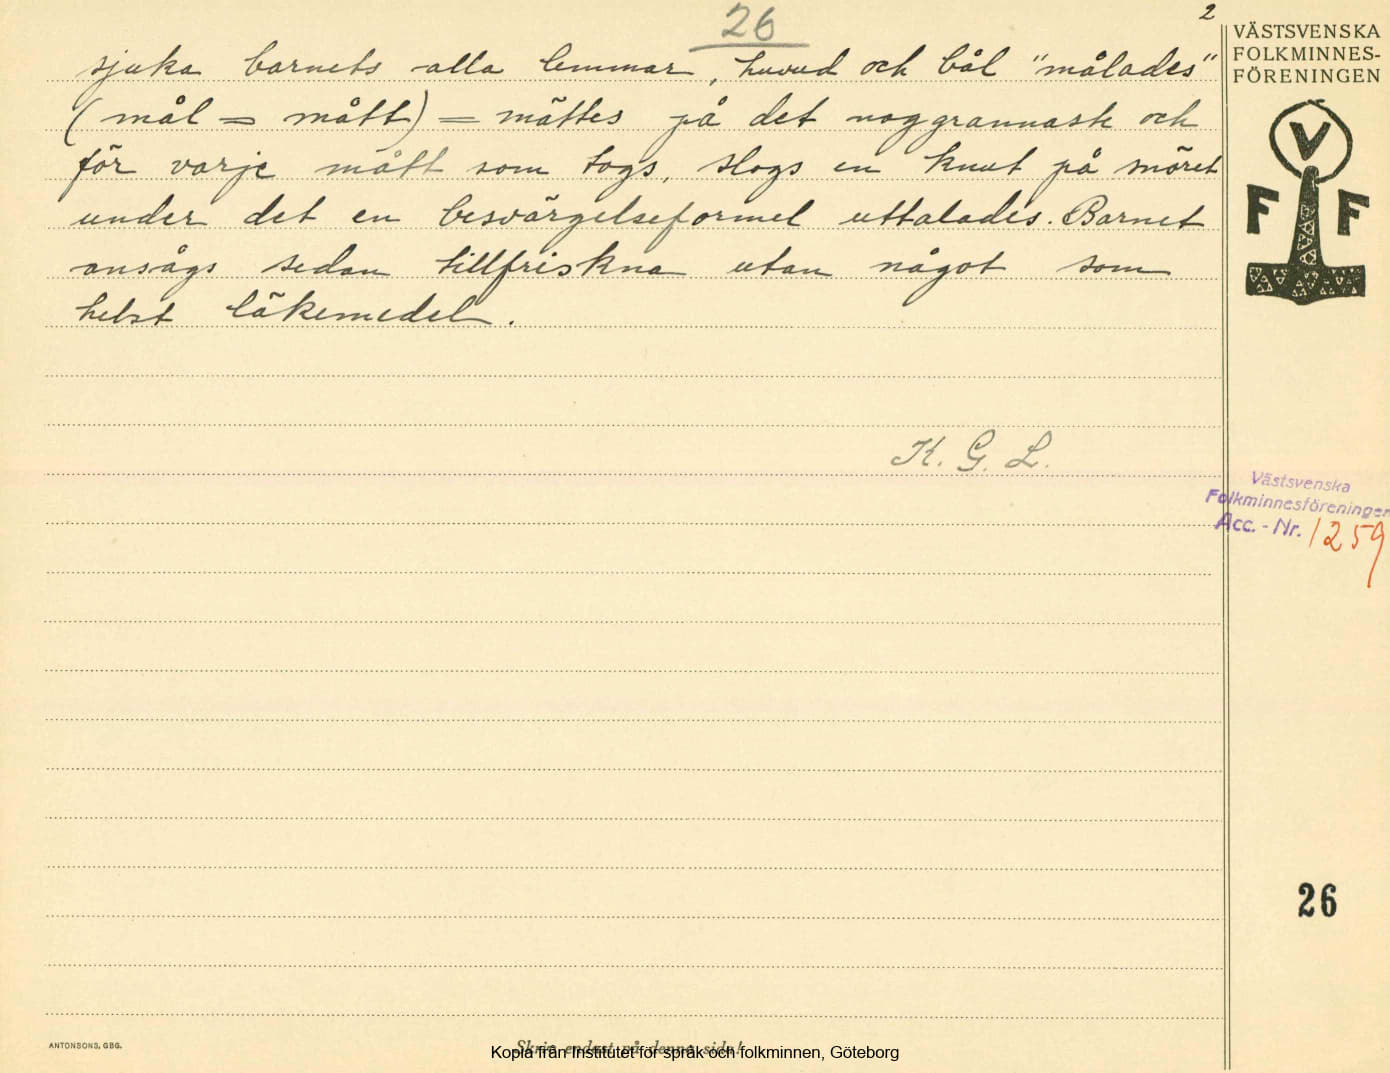 26
2
sjuka barnets alla lemmar, huvud och bål "målades"
(mål = mått) = mättes på det noggrannaste och
för varje mått som togs, slogs en knut på snöret
under det en besvärgelseformel uttalades. Barnet
ansågs sedan tillfriskna utan något som
helst läkemedel.
K. G. L.
VÄSTSVENSKA
FOLKMINNES-
FÖRENINGEN
V
F F
Västsvenska
Folkminnesföreningen
Acc. - Nr. 1259
26
ANTONSONS, GBG.
Skriv endast på denna sida!
Kopia från Institutet för språk och folkminnen, Göteborg